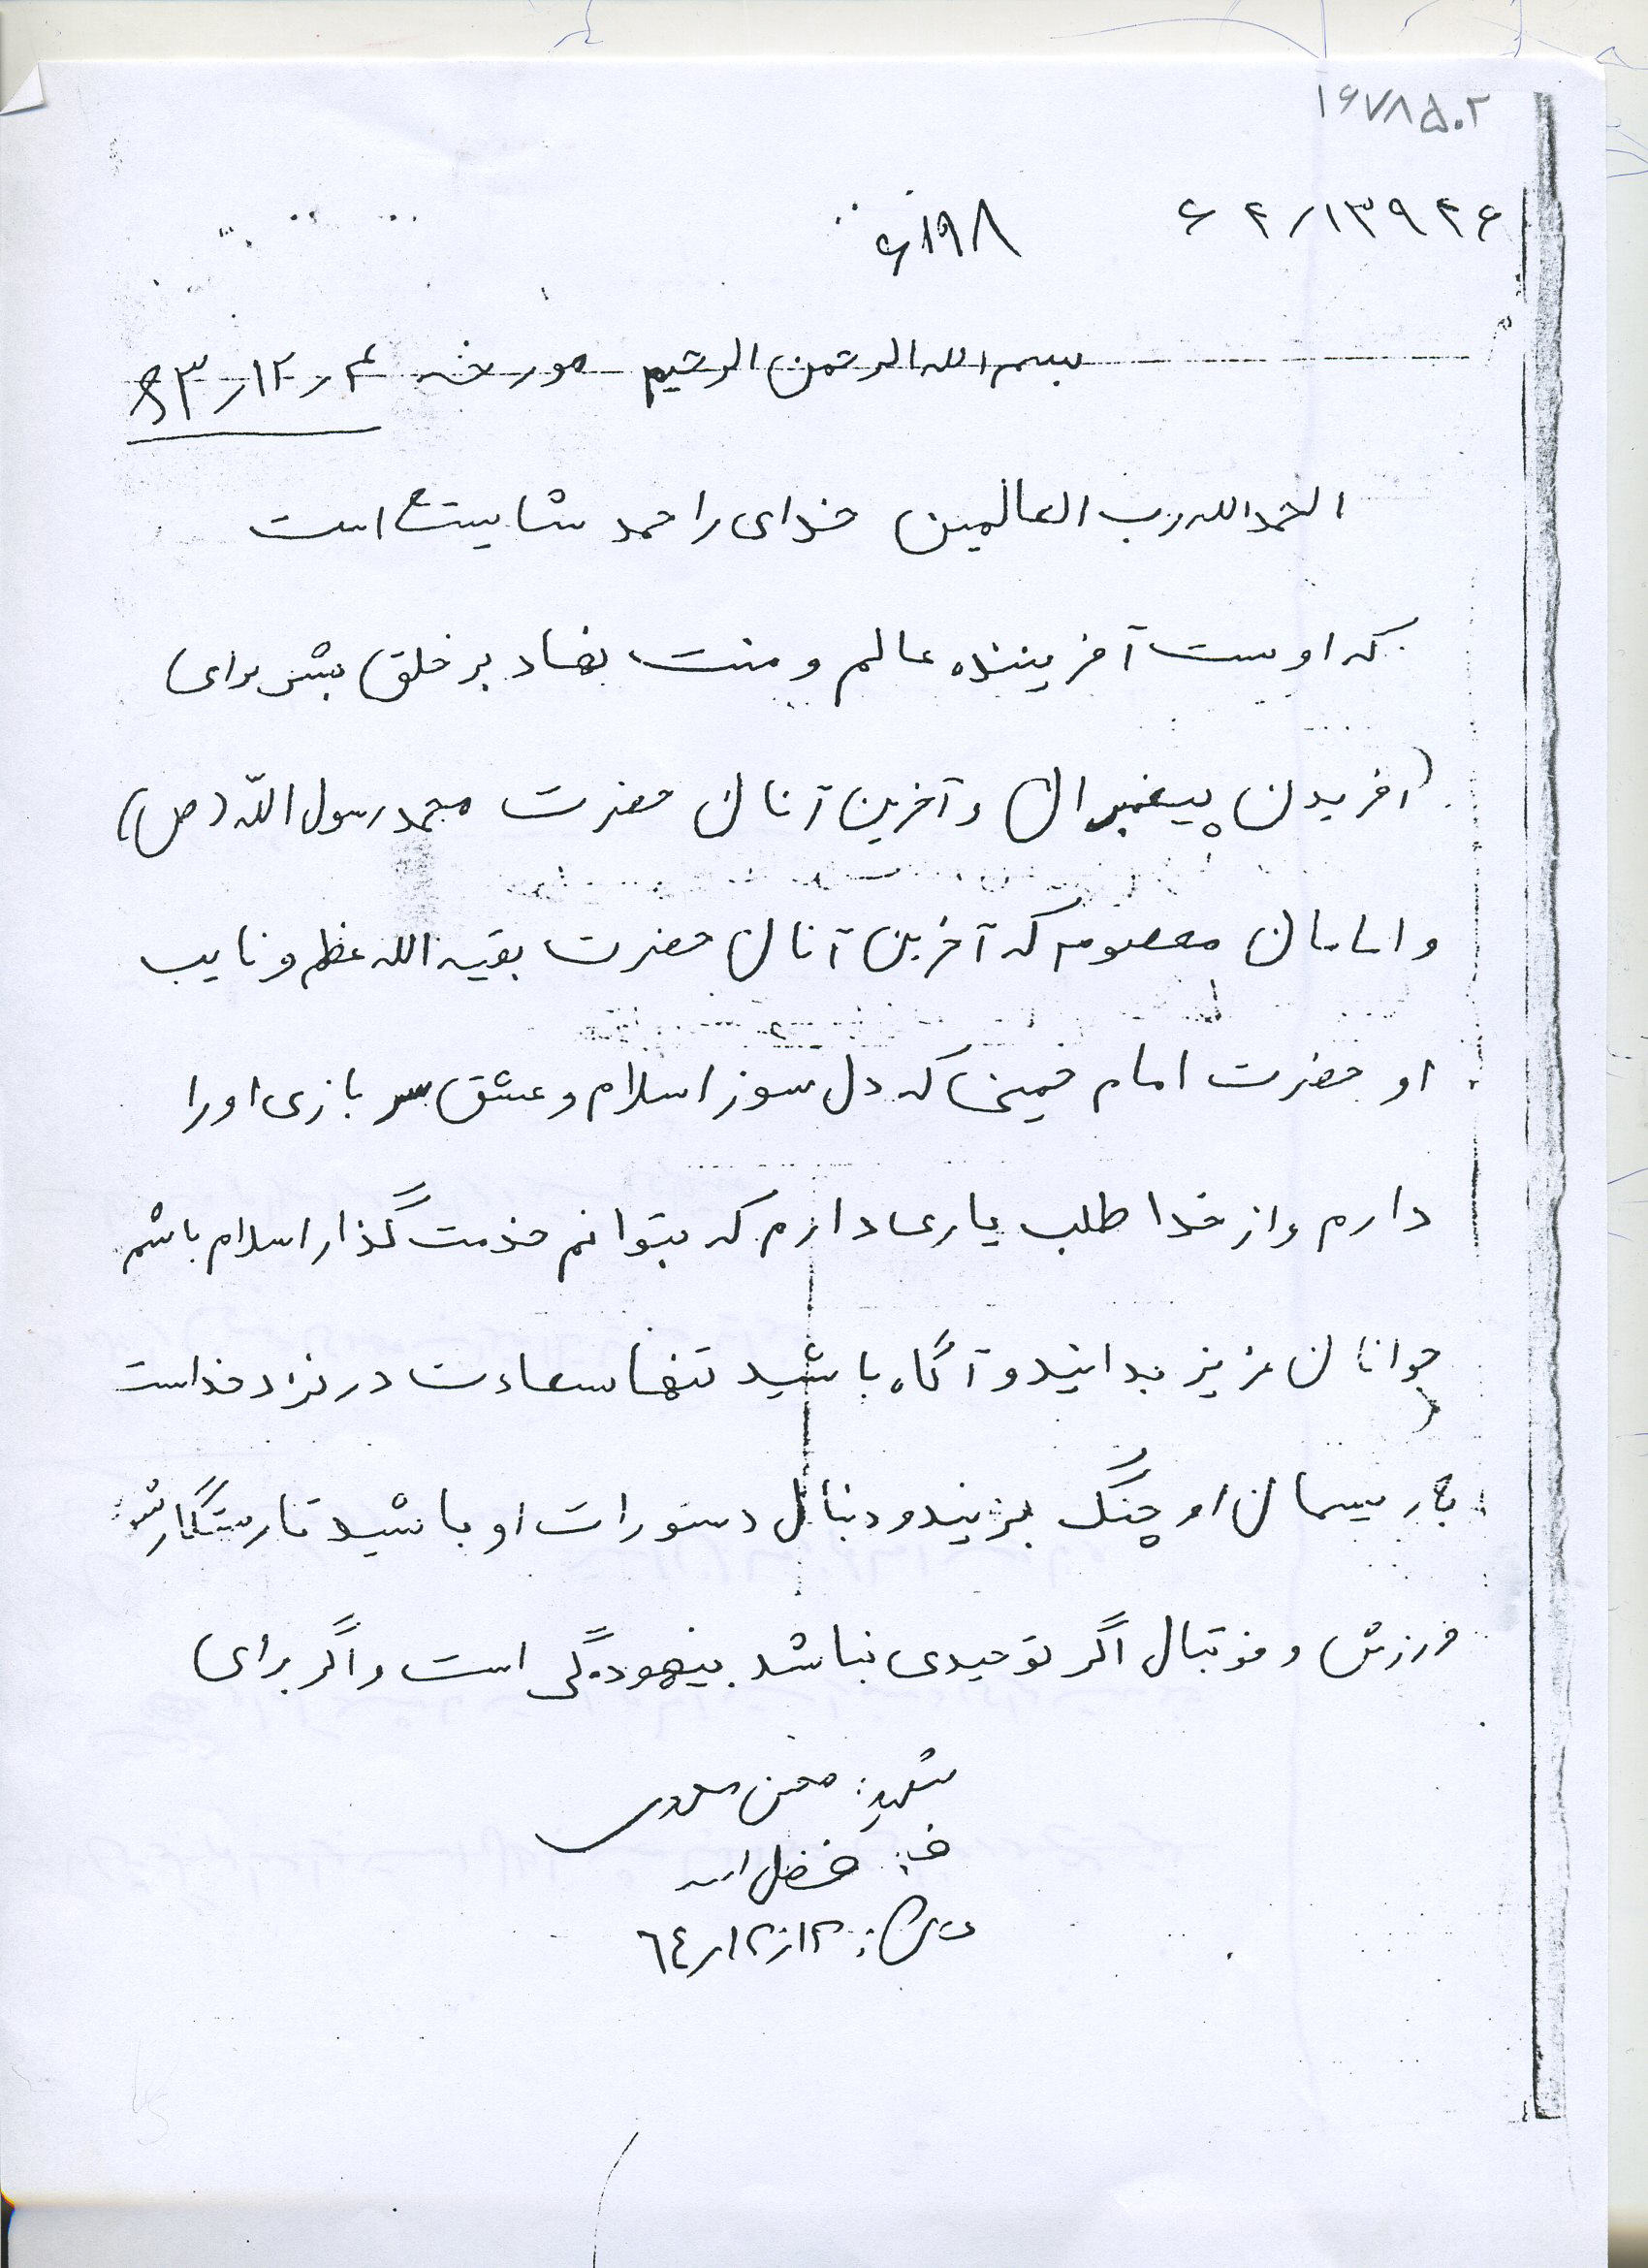 ۱۶۷۸۵۰۲
۶۲/۱۳۹۲۶
۶۱۹۸
بسم الله الرحمن الرحیم مورخه ۴ر۱۲ر۶۳
الحمدالله رب العالمین خدای را حمد شایسته است
که اوست آفریننده عالم و منت نهاد بر خلق بشر برای
آفریدن پیغمبران و آخرین آنان حضرت محمد رسول الله (ص)
و امامان معصوم که آخرین آنان حضرت بقیه الله عظم و نایب
او حضرت امام خمینی که دل سوز اسلام و عشق سر بازی او را
دارم و از خدا طلب یاری دارم که بتوانم خدمت گذار اسلام باشم
جوانان عزیز بدانید و آگاه باشید تنها سعادت در نزد خداست
به ریسمان او چنگ بزنید و دنبال دستورات او باشید تا رستگار
ورزش و فوتبال اگر توحیدی نباشد بیهودگی است و اگر برای
شهید: محسن
ف: فضل الله
ت ش: ۱۲ر۱۲ر٦٤